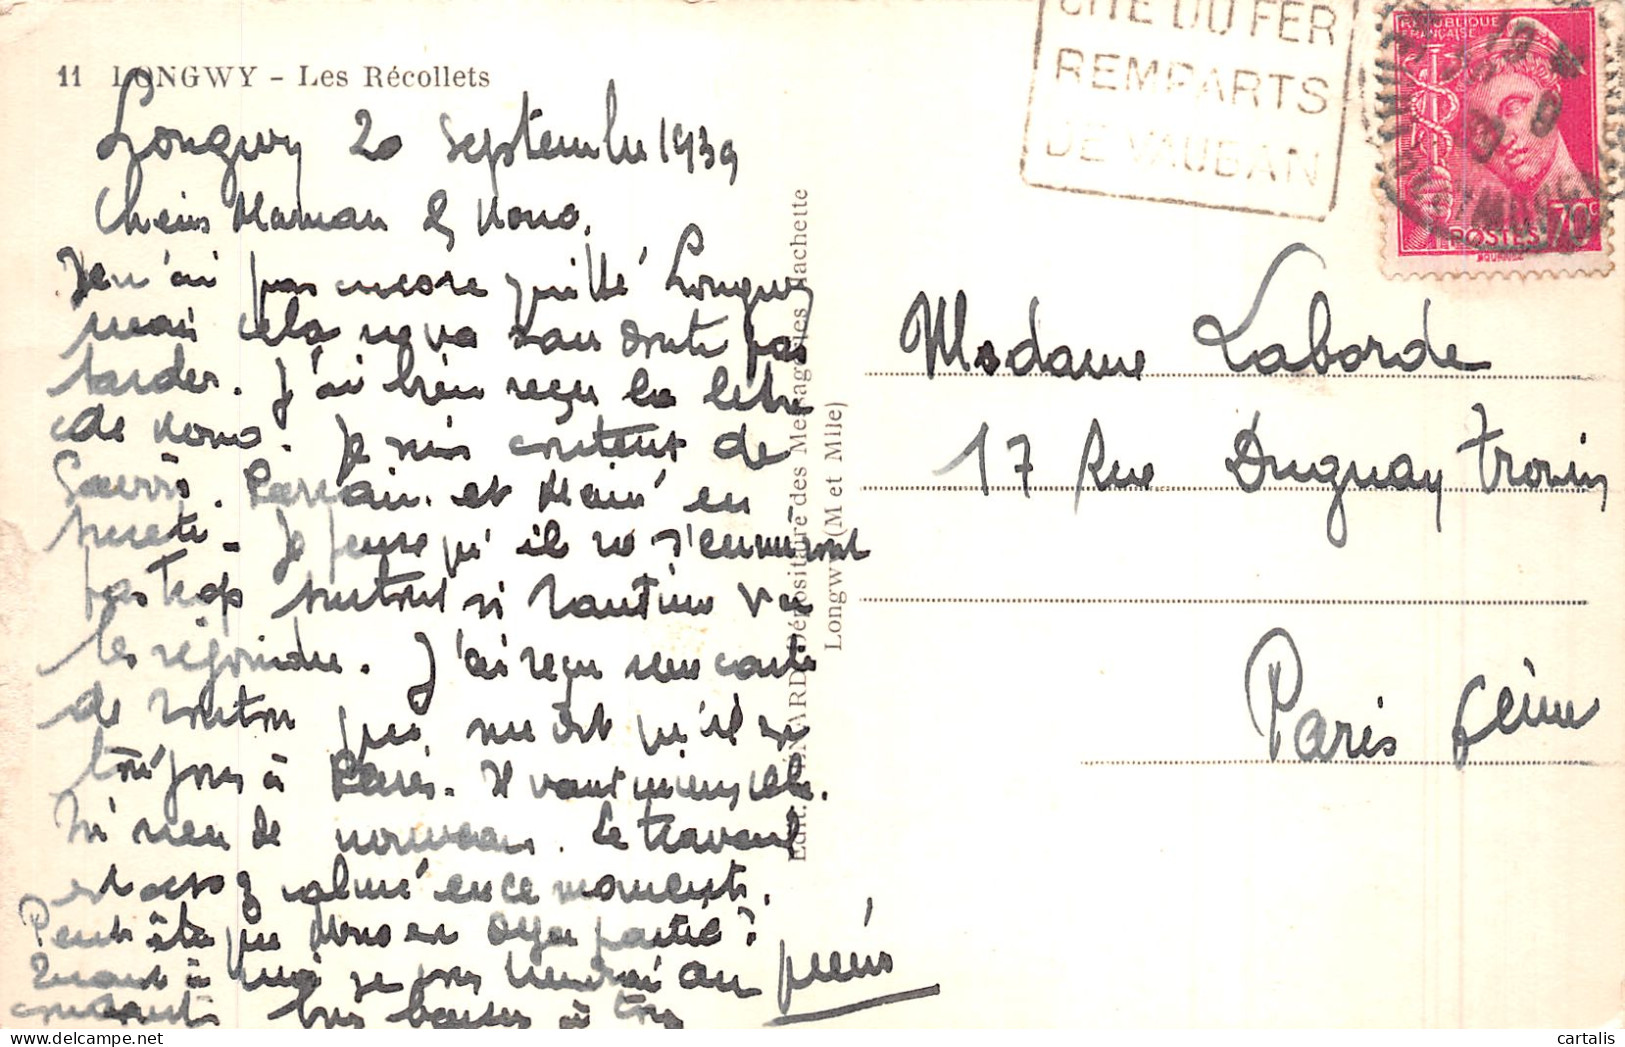 11 LONGWY - Les Récollets
Longwy 20 Septembre 1939
Chéris Maman & Nono.
Je n'ai pas encore quitté Longwy
mais cela ne va sans doute pas
tarder. J'ai bien reçu la lettre
de Nono. Je suis content de
savoir et en
sureté. Je pense qu' ils ne s'ennuieront
pas trop surtout si va
les rejoindre. J'ai reçu une carte
de qui me dit qu'il est
toujours à Paris. Il vaut mieux cela.
Ni rien de nouveau. Le travail
est assez calme en ce moment.
Peut être que Nono est déjà parti ?
Quant à moi je vous tiendrai au
courant. Gros baisers à tous
CITE DU FER
REMPARTS
DE VAUBAN
REPUBLIQUE
FRANÇAISE
POSTES 70c
Madame Laborde
17 Rue Duguay Trouin
Paris 6ème
Edit. Dépositaire des Messageries Hachette
Longwy (M et Mlle)
cartalis